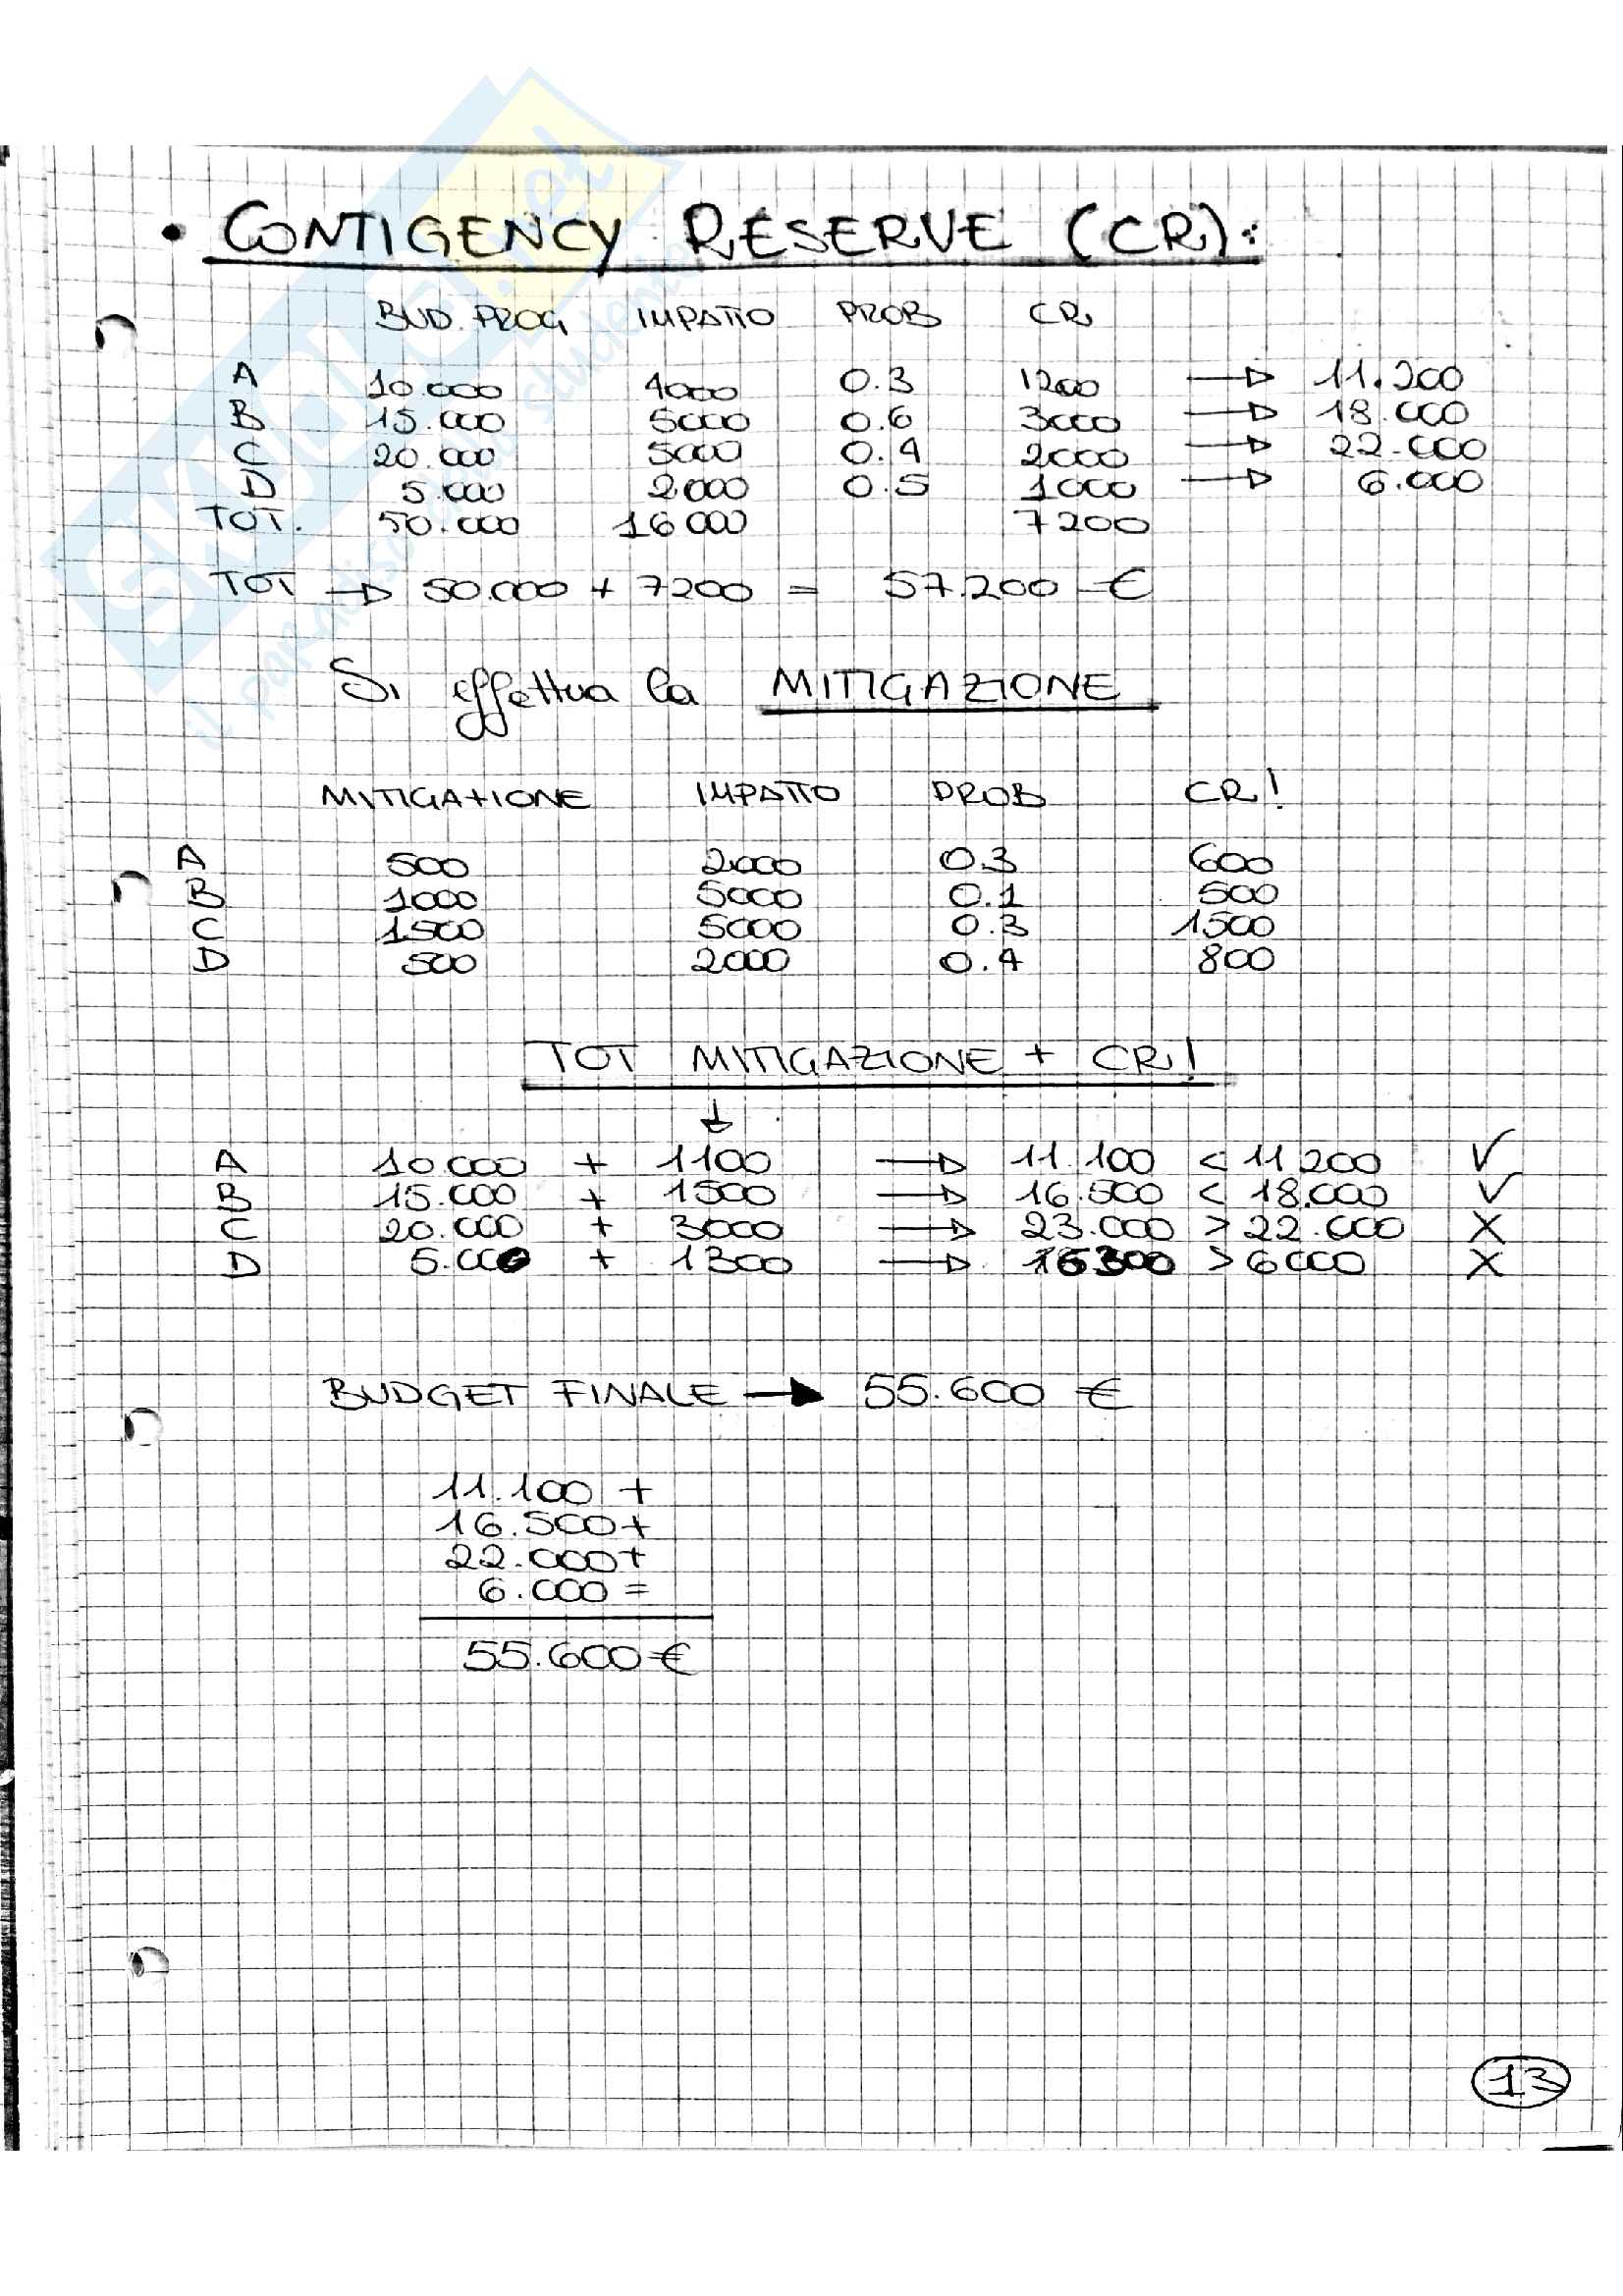 • CONTIGENCY RESERVE (CR):
BUD. PROG IMPATTO PROB CR
A 10.000 4000 0.3 1200 → 11.200
B 15.000 5000 0.6 3000 → 18.000
C 20.000 5000 0.4 2000 → 22.000
D 5.000 2000 0.5 1000 → 6.000
TOT. 50.000 16000 7200
TOT → 50.000 + 7200 = 57.200 €
Si effettua la MITIGAZIONE
MITIGATIONE IMPATTO PROB CR!
A 500 2000 0.3 600
B 1000 5000 0.1 500
C 1500 5000 0.3 1500
D 500 2000 0.4 800
TOT MITIGAZIONE + CR!
↓
A 10.000 + 1100 → 11.100 < 11.200 ✓
B 15.000 + 1500 → 16.500 < 18.000 ✓
C 20.000 + 3000 → 23.000 > 22.000 X
D 5.000 + 1300 → 6300 > 6000 X
BUDGET FINALE → 55.600 €
11.100 +
16.500 +
22.000 +
6.000 =
55.600 €
13
SKUOLA.net
il paradiso dello studente